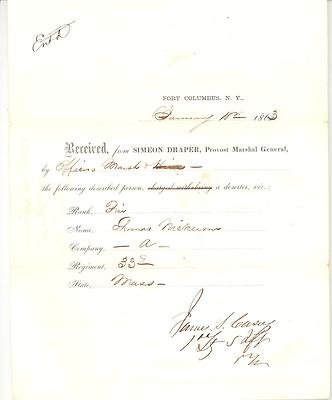 Ent'd
FORT COLUMBUS, N. Y.,
January 10th 1863
Received, from SIMEON DRAPER, Provost Marshal General,
by Officers Marsh &
the following described person, charged with being a deserter, viz.:
Rank, Priv
Name, Thomas Nickerson
Company, — A —
Regiment, 33d
State, Mass —
James S. Casey
1st Lt 5